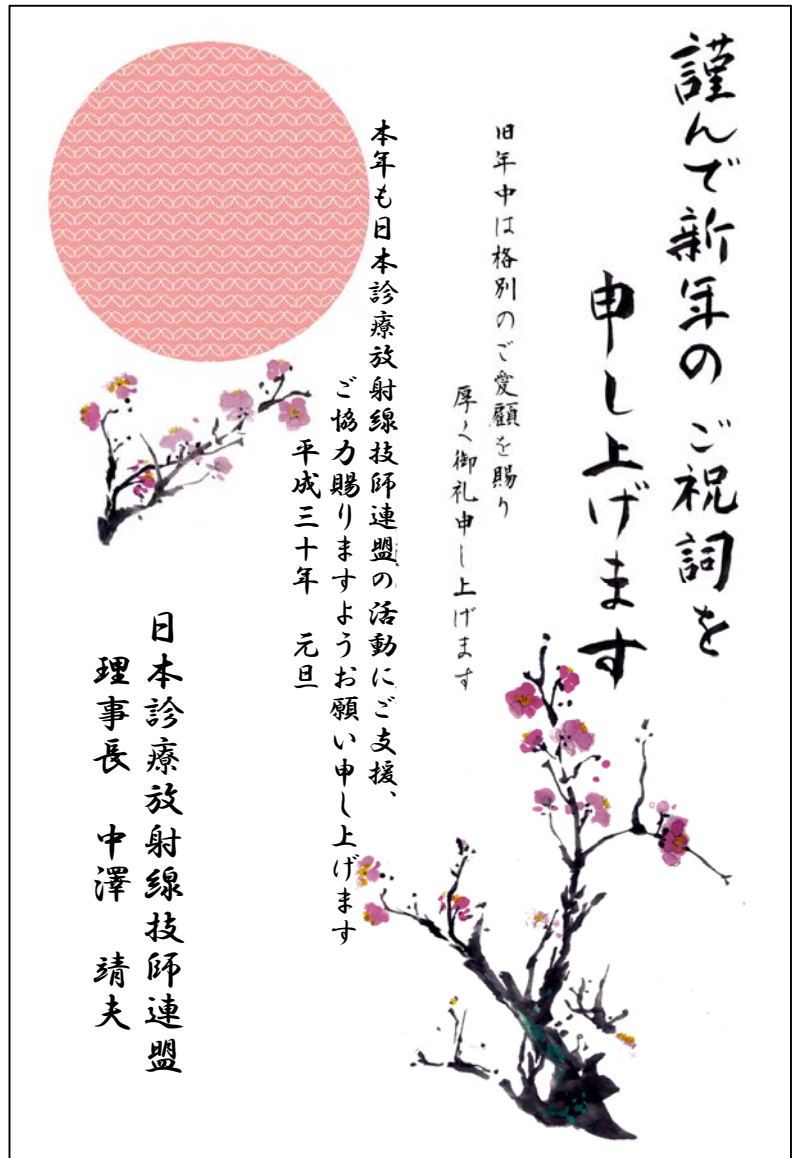 謹んで新年の ご祝詞を
申し上げます
旧年中は格別のご愛顧を賜り
厚く御礼申し上げます
本年も日本診療放射線技師連盟の活動にご支援、
ご協力賜りますようお願い申し上げます
平成三十年　元旦
日本診療放射線技師連盟
理事長　中澤　靖夫